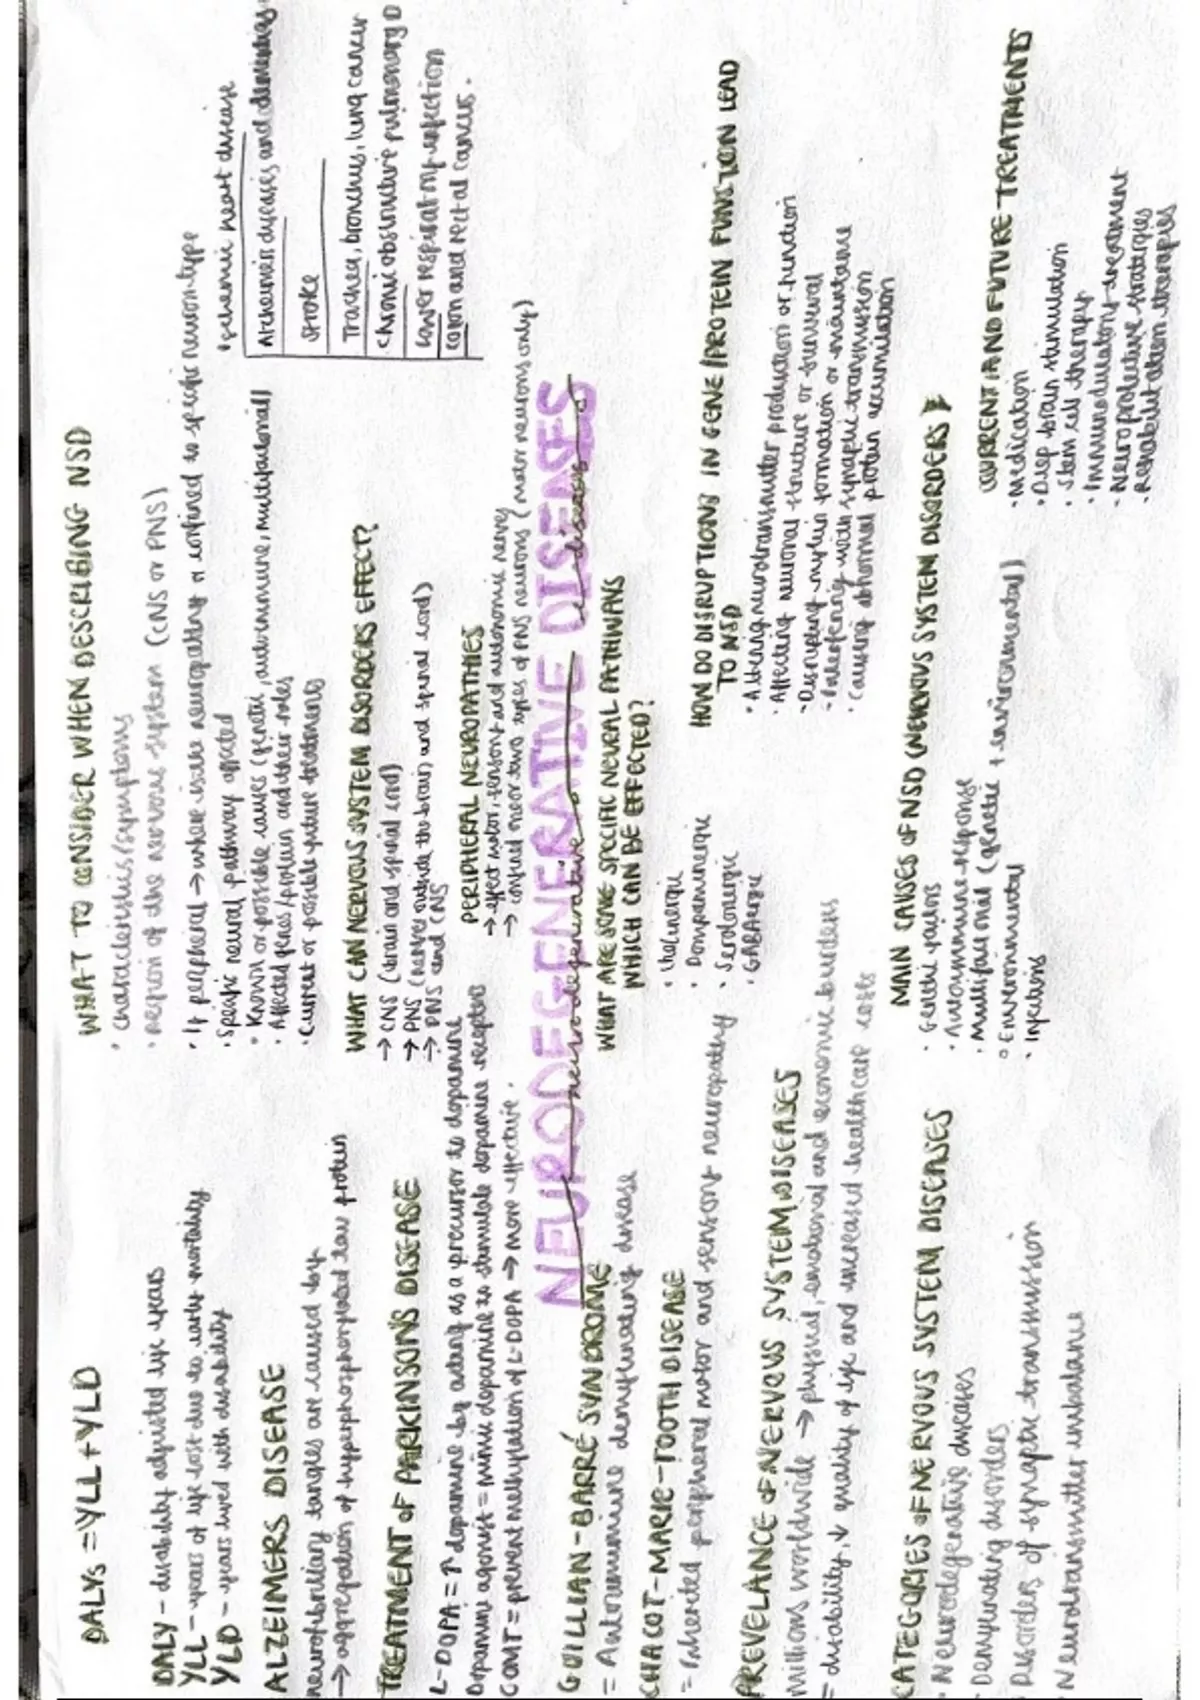 DALYs = YLL + YLD
DALY - disability adjusted life years
YLL - years of life lost due to early mortality
YLD - years lived with disability
ALZEIMERS DISEASE
neurofibrillary tangles are caused by
→ aggregation of hyperphosphorylated tau protein
TREATMENT OF PARKINSONS DISEASE
L-DOPA = ↑ dopamine by acting as a precursor to dopamine
Dopamine agonist = mimic dopamine to stimulate dopamine receptors
COMT = prevent methylation of L-DOPA → more effective.
WHAT TO CONSIDER WHEN DESCRIBING NSD
• characteristics/symptoms
• region of the nervous system (CNS or PNS)
• If peripheral → where is the neuropathy or confined to specific neuron type
• Specific neural pathway affected
• Known or possible causes (genetic, autoimmune, multifactorial)
• Affected genes/protein and their roles
• Current or possible future treatments
Ischaemic heart disease
Alzheimers diseases and dementias
Stroke
Trachea, bronchus, lung cancer
Chronic obstructive pulmonary D
Lower respiratory infection
Colon and rectal cancers.
WHAT CAN NERVOUS SYSTEM DISORDERS EFFECT?
→ CNS (brain and spinal cord)
→ PNS (nerves outside the brain and spinal cord)
→ PNS and CNS
PERIPHERAL NEUROPATHIES
→ effect motor, sensory and autonomic nerves
→ confined to one or two types of PNS neurons (motor neurons only)
NEURODEGENERATIVE DISEASES
neurodegenerative diseases
GUILLIAN-BARRÉ SYNDROME
= Autoimmune demyelinating disease
CHACOT-MARIE-TOOTH DISEASE
= Inherited peripheral motor and sensory neuropathy
WHAT ARE SOME SPECIFIC NEURAL PATHWAYS
WHICH CAN BE EFFECTED?
• Cholinergic
• Dopaminergic
• Serotonergic
• GABAergic
HOW DO DISRUPTIONS IN GENE/PROTEIN FUNSTION LEAD
TO NSD
• Altering neurotransmitter production or function
• Affecting neuronal structure or survival
• Disrupting myelin formation or maintance
• Interfering with synaptic transmission
• Causing abhormal protein accumilation
PREVELANCE OF NERVOUS SYSTEM DISEASES
Millions worldwide → physical, emotional and economic burdens
= disability, ↓ quality of life and increased healthcare costs
CATEGORIES OF NERVOUS SYSTEM DISEASES
• Neurodegenerative diseases
• Demyelinating disorders
Disorders of synaptic transmission
• Neurotransmitter imbalance
MAIN CAUSES OF NSD (NERVOUS SYSTEM DISORDERS)
• Genetic factors
• Autoimmune response
• Multifactorial (genetic + environmental)
• Environmental
• Infections
CURRENT AND FUTURE TREATMENTS
• Medication
• Deep brain stimulation
• Stem cell therapy
• Immunomodulatory treatment
• Neuroprotective strategies
• Rehabilitation therapies